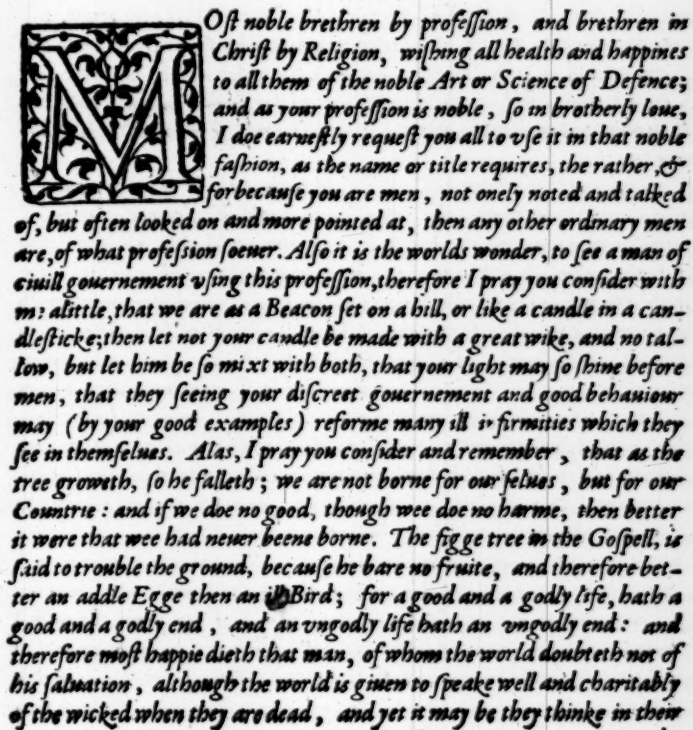 MOſt noble brethren by profeſſion, and brethren in
Chriſt by Religion, wiſhing all health and happines
to all them of the noble Art or Science of Defence;
and as your profeſſion is noble, ſo in brotherly loue,
I doe earneſtly requeſt you all to vſe it in that noble
faſhion, as the name or title requires, the rather, &
forbecauſe you are men, not onely noted and talked
of, but often looked on and more pointed at, then any other ordinary men
are, of what profeſsion ſoeuer. Alſo it is the worlds wonder, to ſee a man of
ciuill gouernement vſing this profeſſion, therefore I pray you conſider with
me alittle, that we are as a Beacon ſet on a hill, or like a candle in a can-
dleſticke; then let not your candle be made with a great wike, and no tal-
low, but let him be ſo mixt with both, that your light may ſo ſhine before
men, that they ſeeing your diſcreet gouernement and good behauiour
may (by your good examples) reforme many ill infirmities which they
ſee in themſelues. Alas, I pray you conſider and remember, that as the
tree groweth, ſo he falleth; we are not borne for our ſelues, but for our
Countrie: and if we doe no good, though wee doe no harme, then better
it were that wee had neuer beene borne. The figge tree in the Goſpell, is
ſaid to trouble the ground, becauſe he bare no fruite, and therefore bet-
ter an addle Egge then an ill Bird; for a good and a godly life, hath a
good and a godly end, and an vngodly life hath an vngodly end: and
therefore moſt happie dieth that man, of whom the world doubteth not of
his ſaluation, although the world is giuen to ſpeake well and charitably
of the wicked when they are dead, and yet it may be they thinke in their